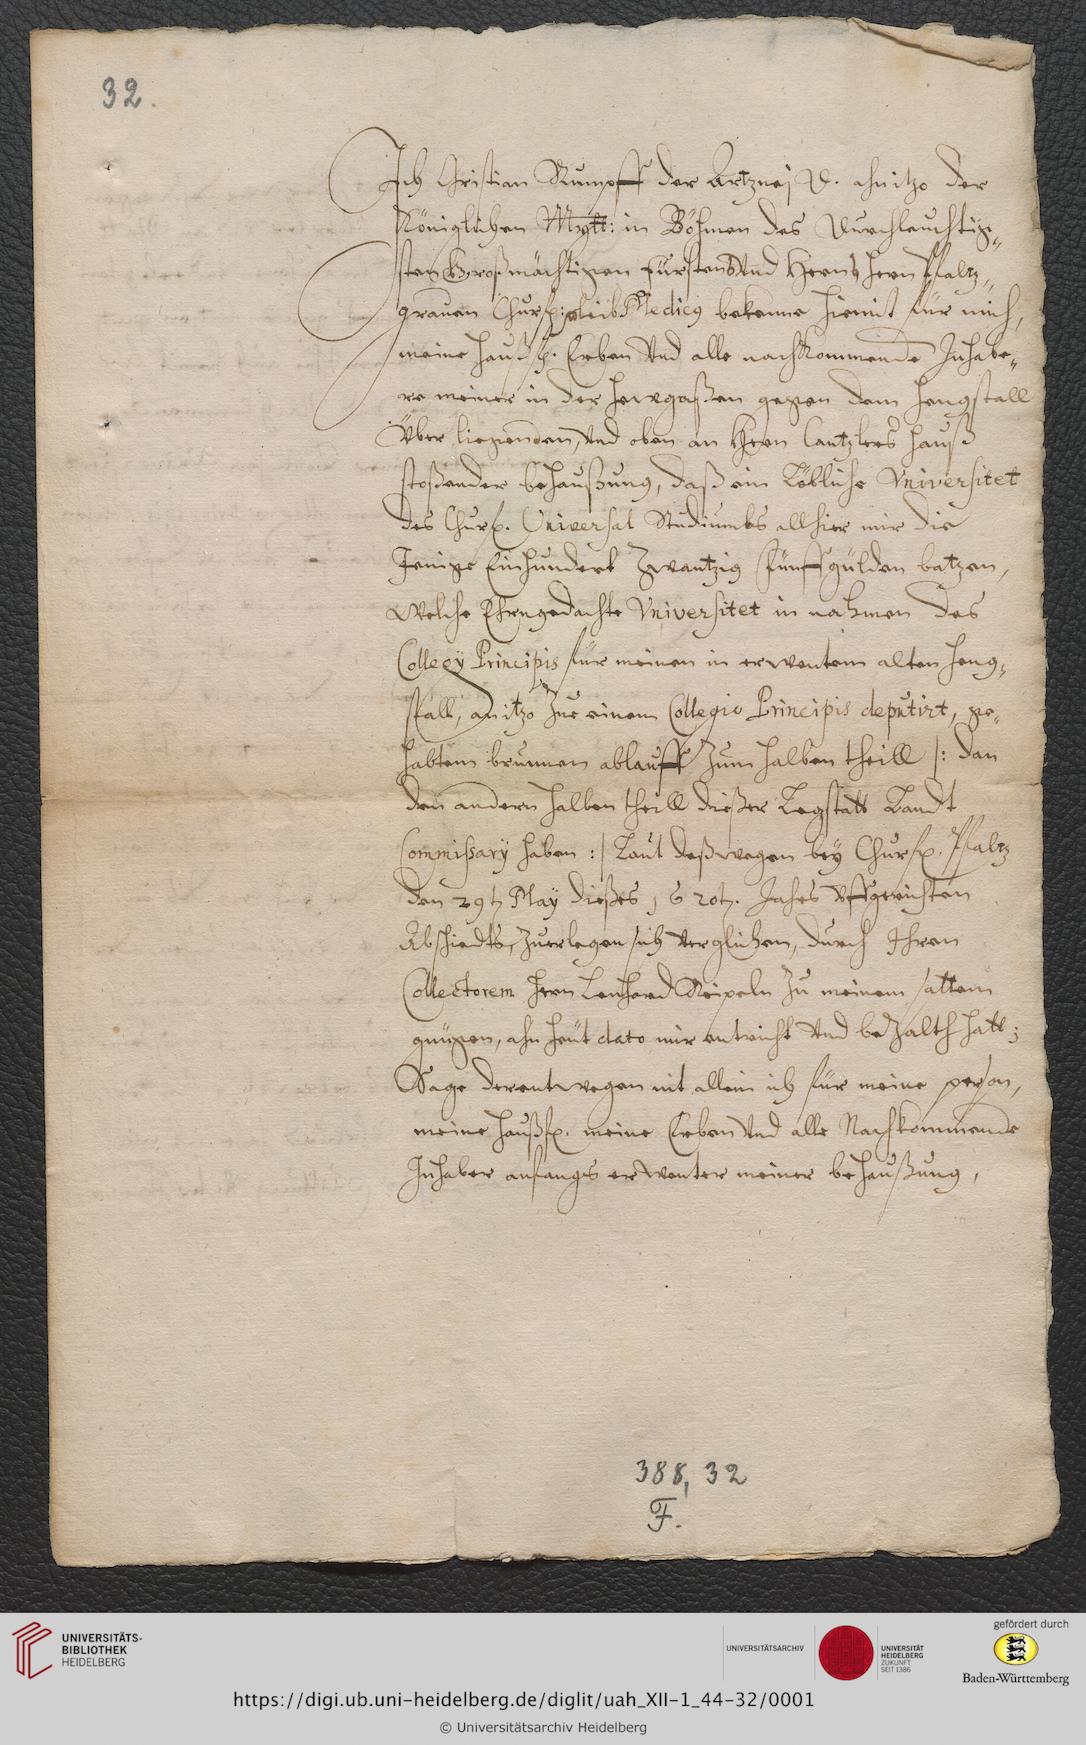 32.
Ich Christian Rumpff der Artzney D. ahnitzo der
Königlichen Mytt: in Böhmen des Durchleuchtig-
sten Großmächtigen Fürsten Vnd Herrn Herrn Pfaltz-
grauen Churf: Leib Medicq bekenne hiemit für mich,
meine haußf. Erben Vnd alle nachkommende Inhabe-
re meiner in der gaßen gegen dem hengstall
Vber liegenden, Vnd oben an Hern Cantzlers hauß
stoßender behaußung, daß ein Löbliche Vniversitet
des Churf. Vniversal Studiumbs allhier mir die
Jenige Einhundert Zwantzig fünff gülden batzen,
Welche Ehrngedachte Vniversitet in nahmen des
Collegij Principis für meinen in erwentem alten heng-
stall, anitzo Zue einem Collegio Principis deputirt, ge-
habtem brunnen ablauff Zum halben theill |: dan
den andern halben theill dießer Legstatt Landt
Commissarij haben :| Laut deßwegen bey Churf. Pfaltz
den 29t May dießes 1620t. Jahrs vffgerichten
Abschiedts, Zuerlegen sich verglichen, durch Ihren
Collectorem Hern Lenhard Zu meinem sattem
gnügen, ahn heut dato mir entricht Vnd bezalth hatt;
Sage derentwegen nit allein ich für meine person,
meine haußf. meine Erben Vnd alle Nachkommende
Inhaber anfangs erwenter meiner behaußung,
388, 32
F.
UNIVERSITÄTS-
BIBLIOTHEK
HEIDELBERG
UNIVERSITÄTSARCHIV
UNIVERSITÄT
HEIDELBERG
ZUKUNFT
SEIT 1386
gefördert durch
Baden-Württemberg
https://digi.ub.uni-heidelberg.de/diglit/uah_XII-1_44-32/0001
© Universitätsarchiv Heidelberg